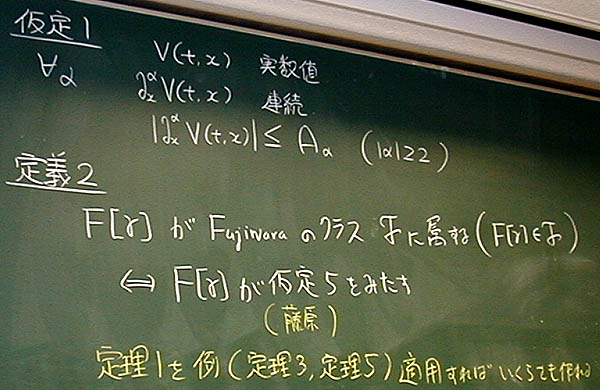 仮定1
∀α V(t,x) 実数値
∂ₓ^α V(t,x) 連続.
|∂ₓ^α V(t,x)| ≤ Aα (|α|≥2)
定義2
F[γ] が Fujiwara のクラス 𝓕 に属する (F[γ]∈𝓕)
⇔ F[γ] が仮定5をみたす
(藤原)
定理1を 例 (定理3, 定理5) 適用すれば いくらでも作れる